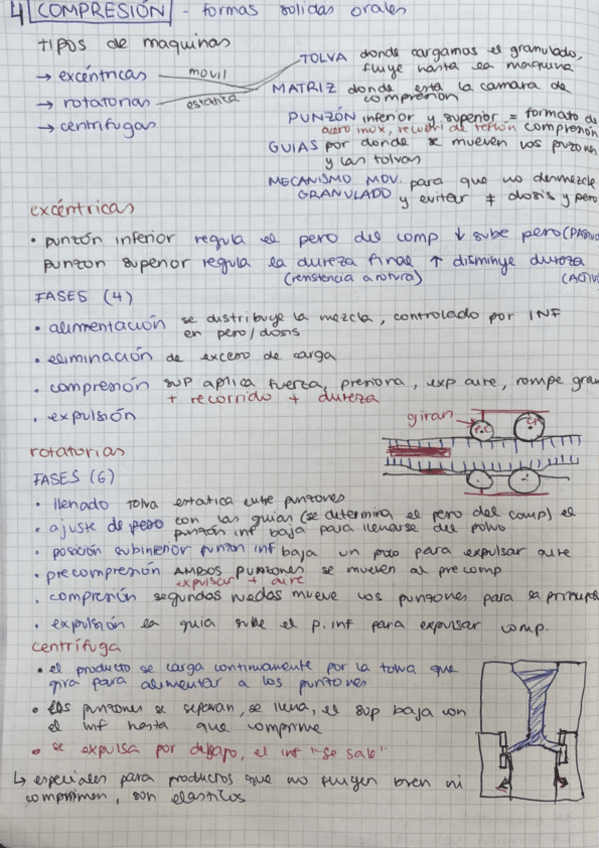 4 COMPRESIÓN - formas solidas orales
tipos de maquinas
→ excéntricas movil
→ rotatorias estatica
→ centrifugas
TOLVA donde cargamos el granulado,
fluye hasta la maquina
MATRIZ donde esta la camara de
compresion
PUNZÓN inferior y superior = formato de
acero inox, de teflón compresión
GUIAS por donde se mueven los punzones
y las tolvas
MECANISMO MOV. para que no desmezcle
GRANULADO y evitar ≠ dosis y peso
excéntricas
• punzón inferior regula el peso del comp ↓ sube peso (PASIVO
punzon superior regula la dureza final ↑ disminuye dureza
(resistencia a rotura) (ACTIV
FASES (4)
• alimentación se distribuye la mezcla, controlado por INF
en peso/dosis
• eliminación de exceso de carga
• compresión sup aplica fuerza, presiona, exp aire, rompe gran
+ recorrido + dureza
• expulsión
giran
P.C CP
rotatorias
FASES (6)
• llenado tolva estatica entre punzones
• ajuste de peso con las guias (se determina el peso del comp) el
punzón inf baja para llenarse del polvo
• posición subinferior punzon inf baja un poco para expulsar aire
• precompresión AMBOS punzones se mueven al pre comp
expulsar + aire
• compresión segundas ruedas mueve los punzones para la principal
• expulsión la guia sube el p. inf para expulsar comp.
centrífuga
• el producto se carga continuamente por la tolva que
gira para alimentar a los punzones
• los punzones se separan, se llena, el sup baja con
el inf hasta que comprime
• se expulsa por debajo, el inf "se sale"
↳ especiales para productos que no fluyen bien ni
comprimen, son elasticos